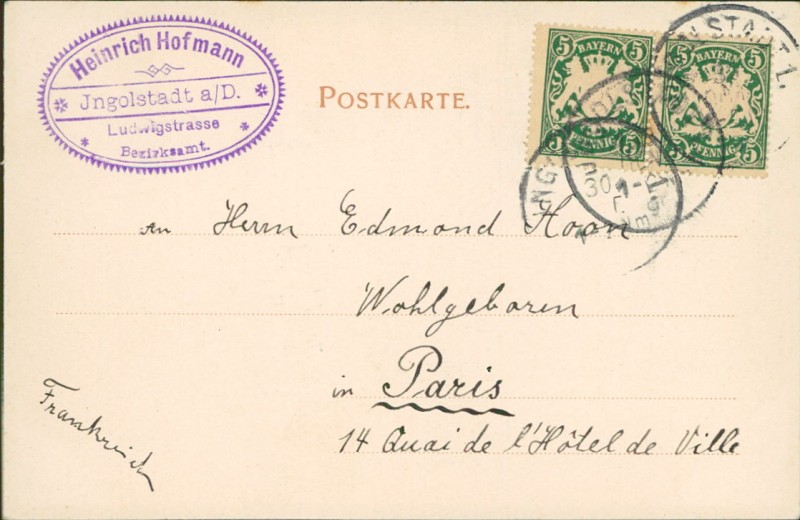 Heinrich Hofmann
Jngolstadt a/D.
Ludwigstrasse
Bezirksamt.
POSTKARTE.
5 BAYERN 5
5 PFENNIG 5
5 BAYERN 5
5 PFENNIG 5
An Herrn Edmond Hoon
Wohlgeboren
in Paris
14 Quai de l'Hôtel de Ville
Frankreich